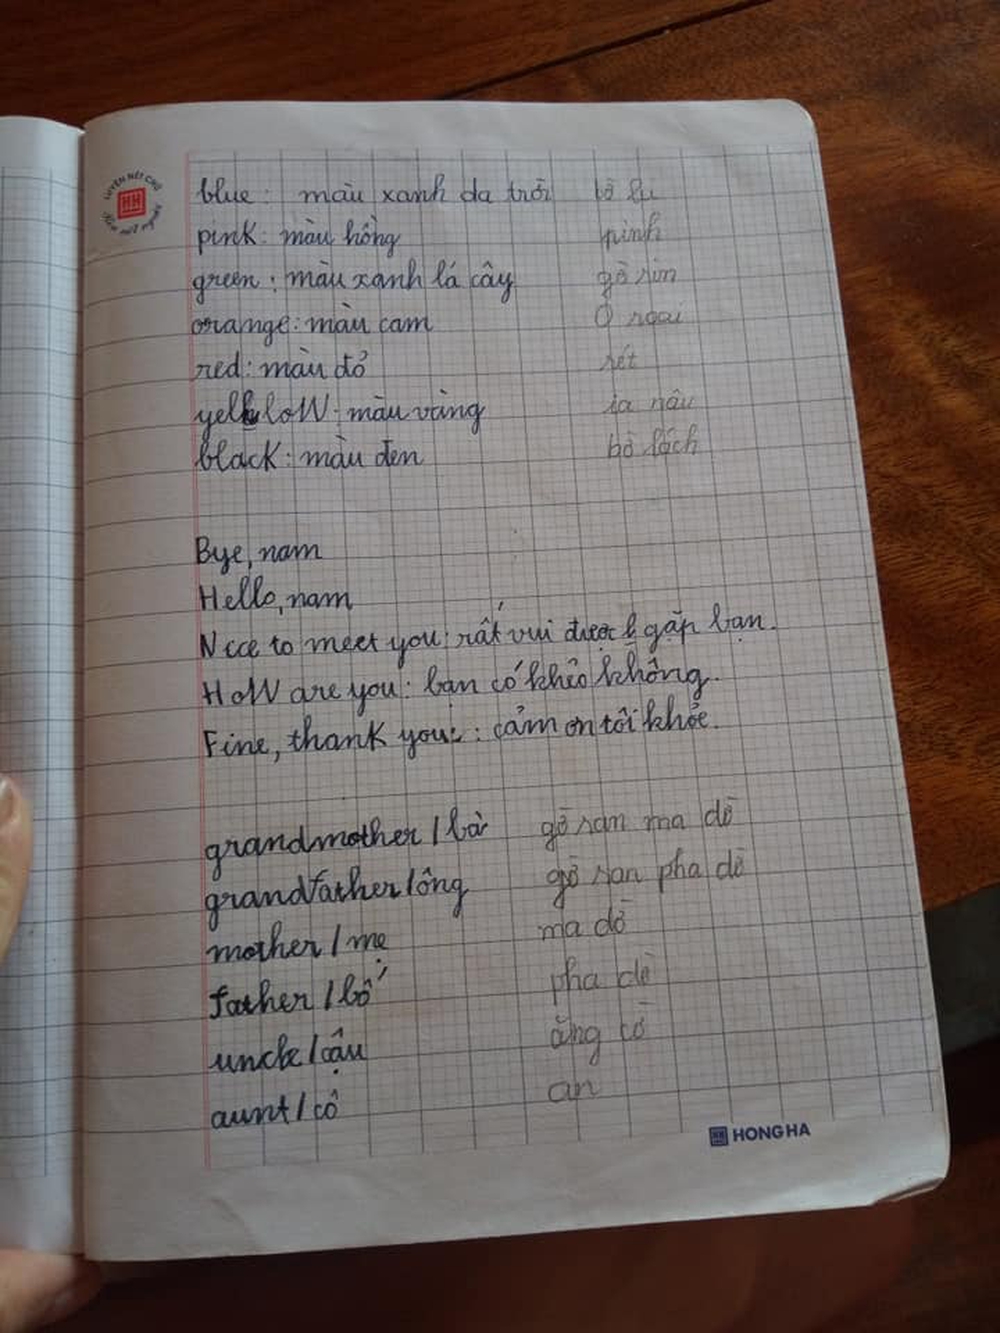 LUYỆN NÉT CHỮ
HH
Rèn nết người
blue: màu xanh da trời bờ lu
pink: màu hồng pinh
green: màu xanh lá cây gờ rin
orange: màu cam Ọ roai
red: màu đỏ rét
yellow: màu vàng ia nâu
black: màu đen bờ lách
Bye, nam
Hello, nam
Nice to meet you: rất vui được gặp bạn.
HoW are you: bạn có khỏe không.
Fine, thank you: cảm ơn tôi khỏe.
grandmother / bà gờ ran ma dờ
grandfather / ông gờ ran pha dờ
mother / mẹ ma dờ
father / bố pha dờ
uncle / cậu ăng cờ
aunt / cô an
HH HONG HA